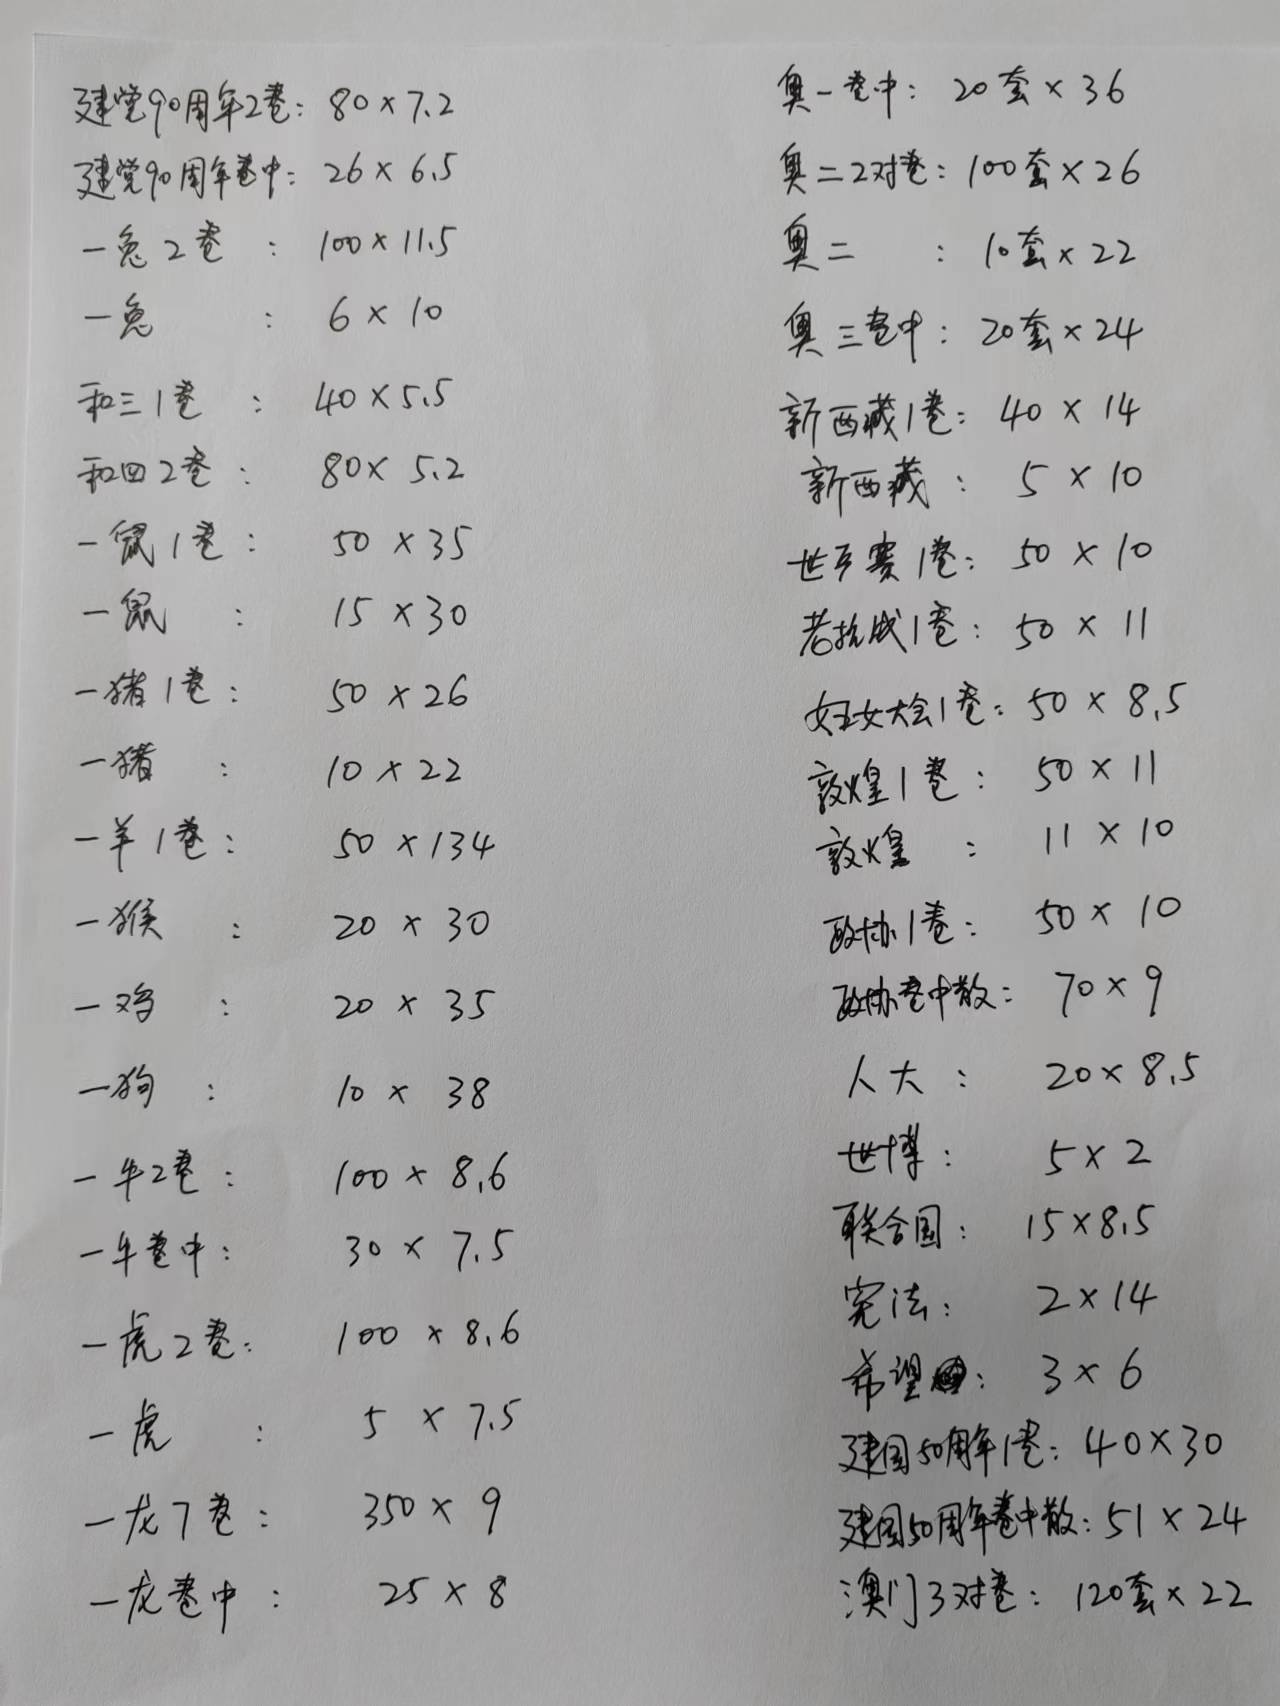 建党90周年2卷：80×7.2
建党90周年卷中：26×6.5
一兔2卷：100×11.5
一兔：6×10
和三1卷：40×5.5
和四2卷：80×5.2
一鼠1卷：50×35
一鼠：15×30
一猪1卷：50×26
一猪：10×22
一羊1卷：50×134
一猴：20×30
一鸡：20×35
一狗：10×38
一牛2卷：100×8.6
一牛卷中：30×7.5
一虎2卷：100×8.6
一虎：5×7.5
一龙7卷：350×9
一龙卷中：25×8
奥一卷中：20套×36
奥二2对卷：100套×26
奥二：10套×22
奥三卷中：20套×24
新西藏1卷：40×14
新西藏：5×10
世乒赛1卷：50×10
老抗战1卷：50×11
妇女大会1卷：50×8.5
敦煌1卷：50×11
敦煌：11×10
政协1卷：50×10
政协卷中散：70×9
人大：20×8.5
世博：5×2
联合国：15×8.5
宪法：2×14
希望：3×6
建国50周年1卷：40×30
建国50周年卷中散：51×24
澳门3对卷：120套×22